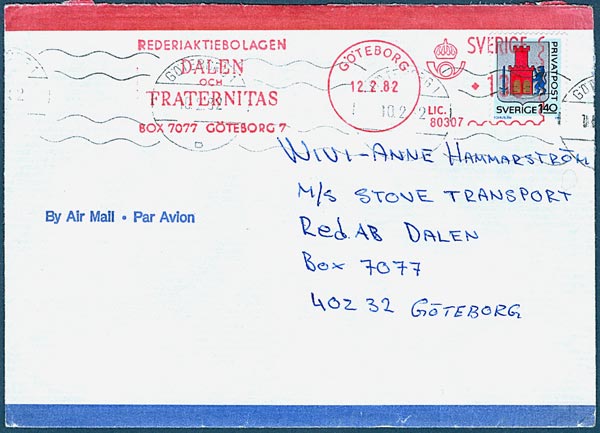 REDERIAKTIEBOLAGEN
DALEN
OCH
FRATERNITAS
BOX 7077 GÖTEBORG 7
GÖTEBORG
12.2.82
SVERIGE
LIC.
80307
PRIVATPOST
SVERIGE 140
WIVI-ANNE HAMMARSTRÖM
M/S STOVE TRANSPORT
Red.AB DALEN
Box 7077
402 32 GÖTEBORG
By Air Mail • Par Avion